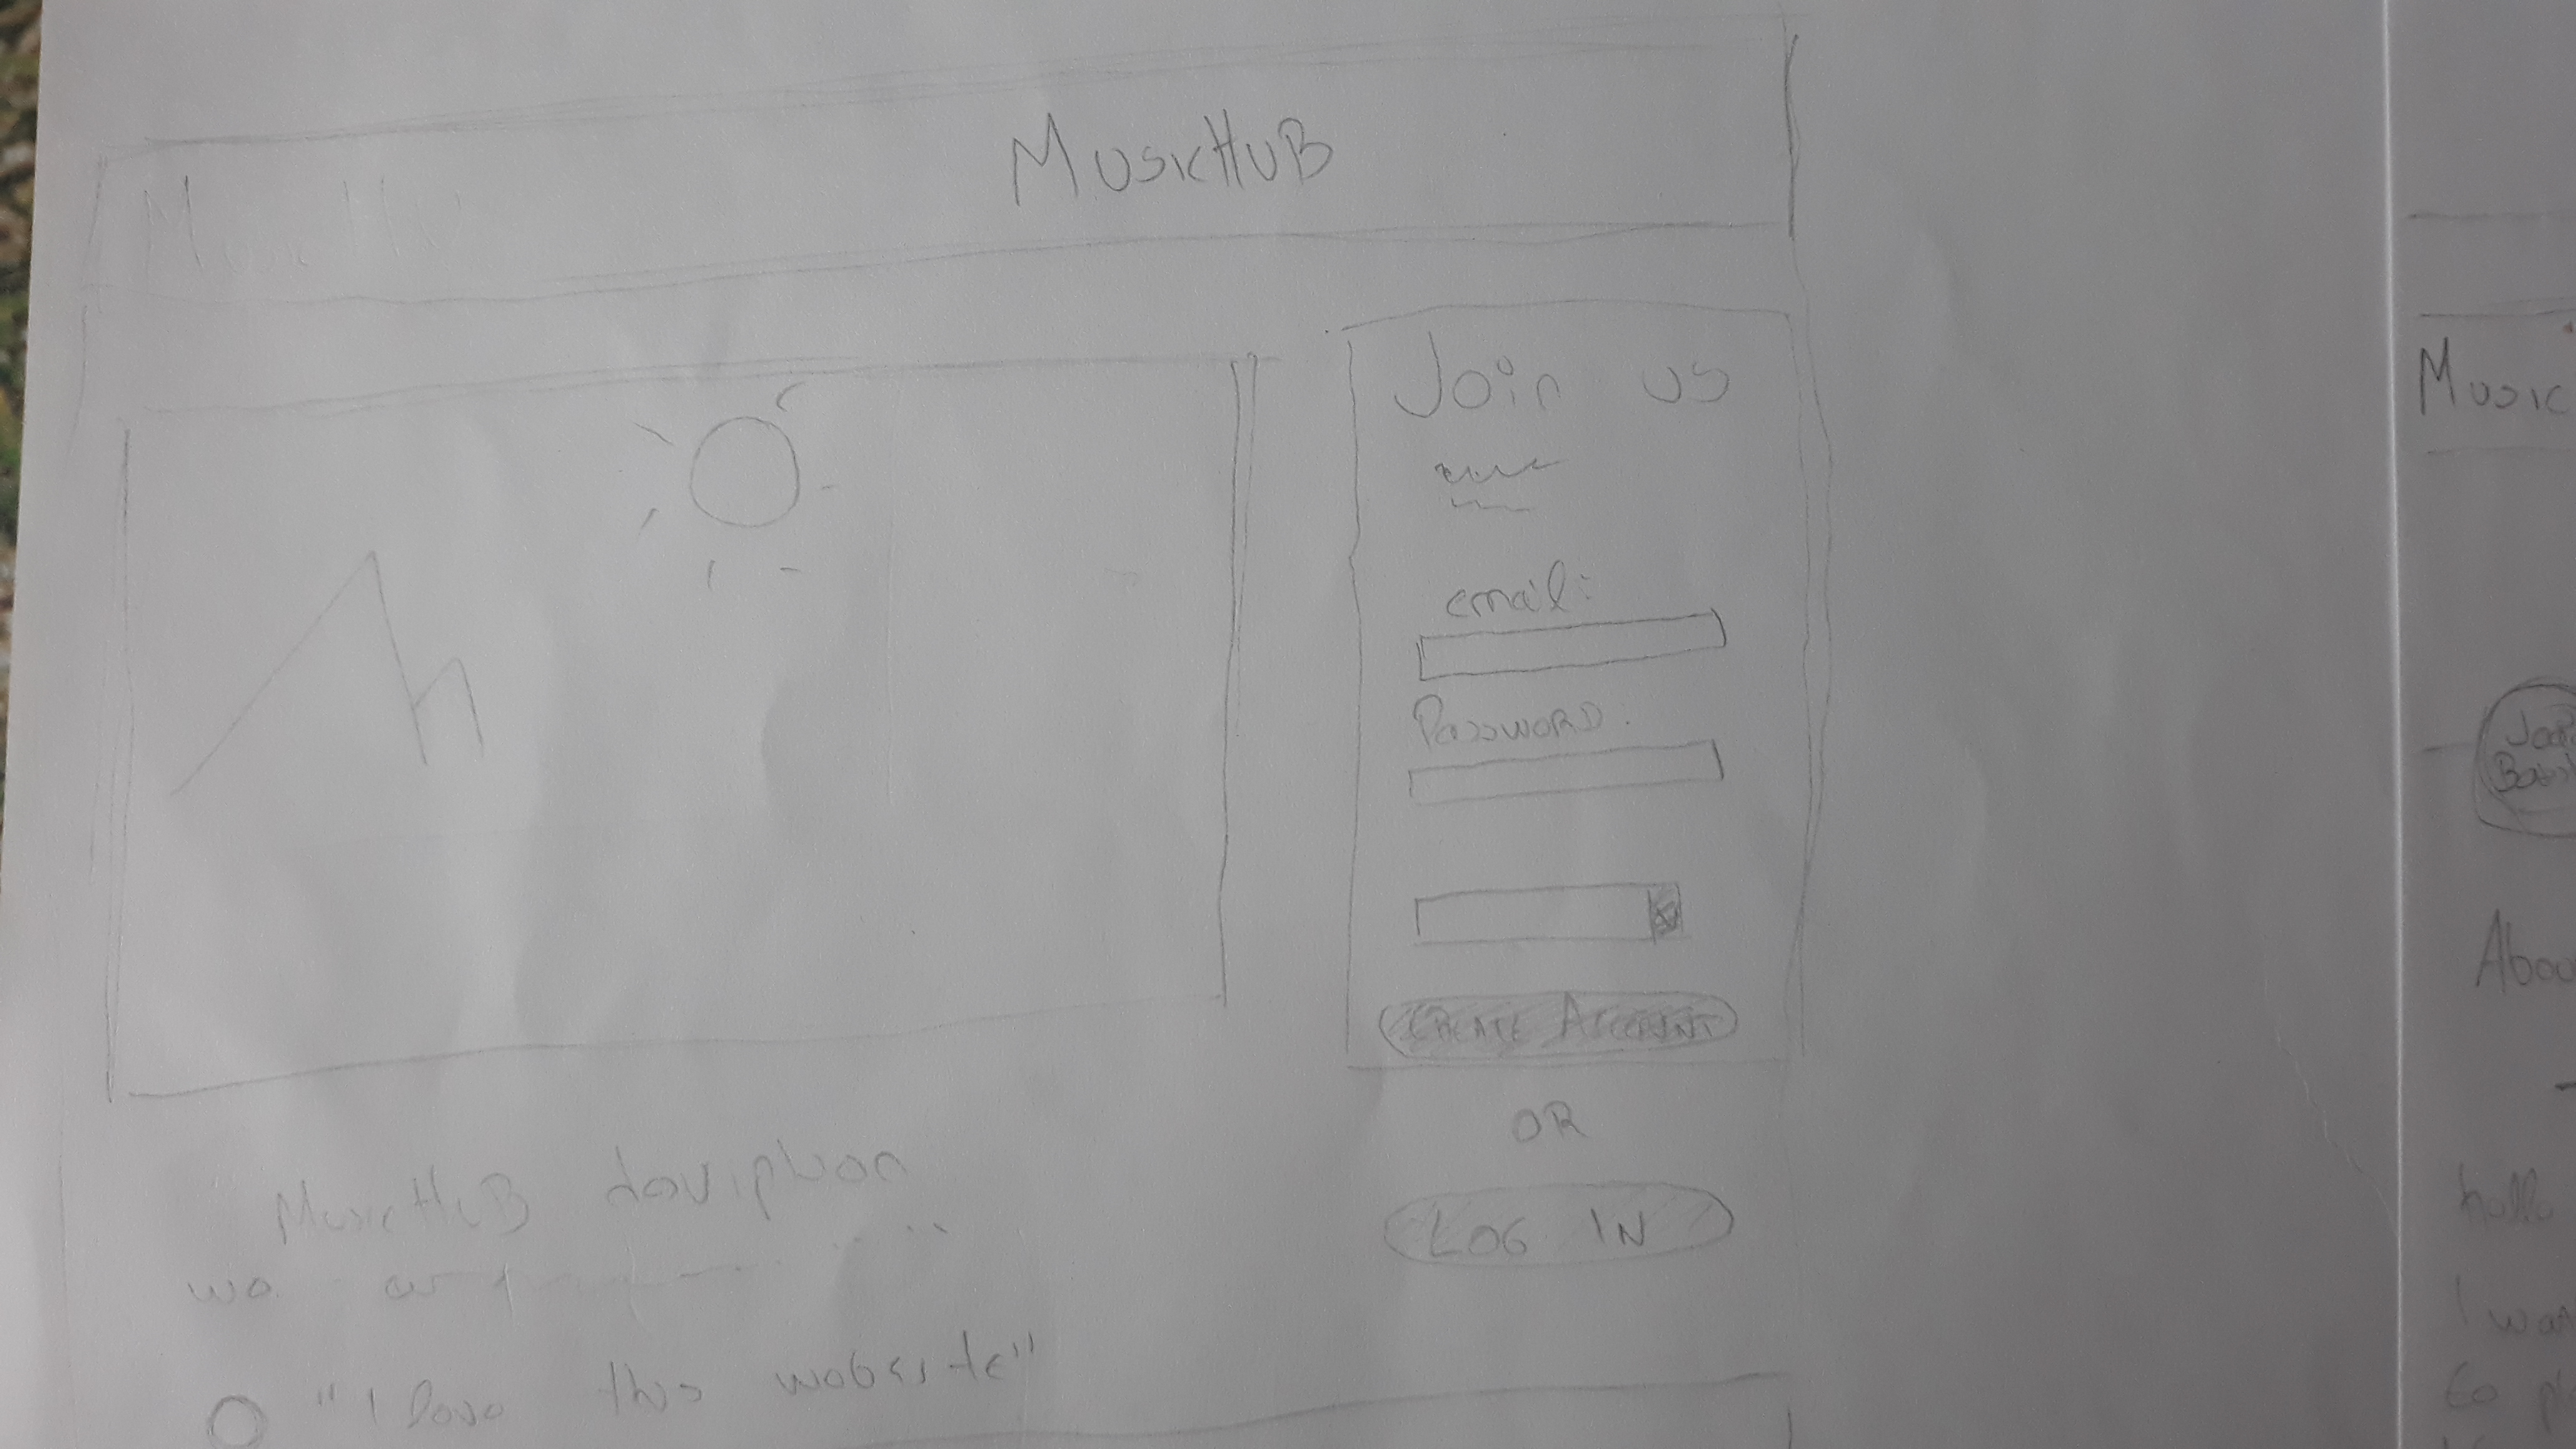 MusicHUB
Join us
email:
Password:
CREATE ACCOUNT
OR
LOG IN
MusicHUB
"I love this website"
Music
Abou
hello
I wan